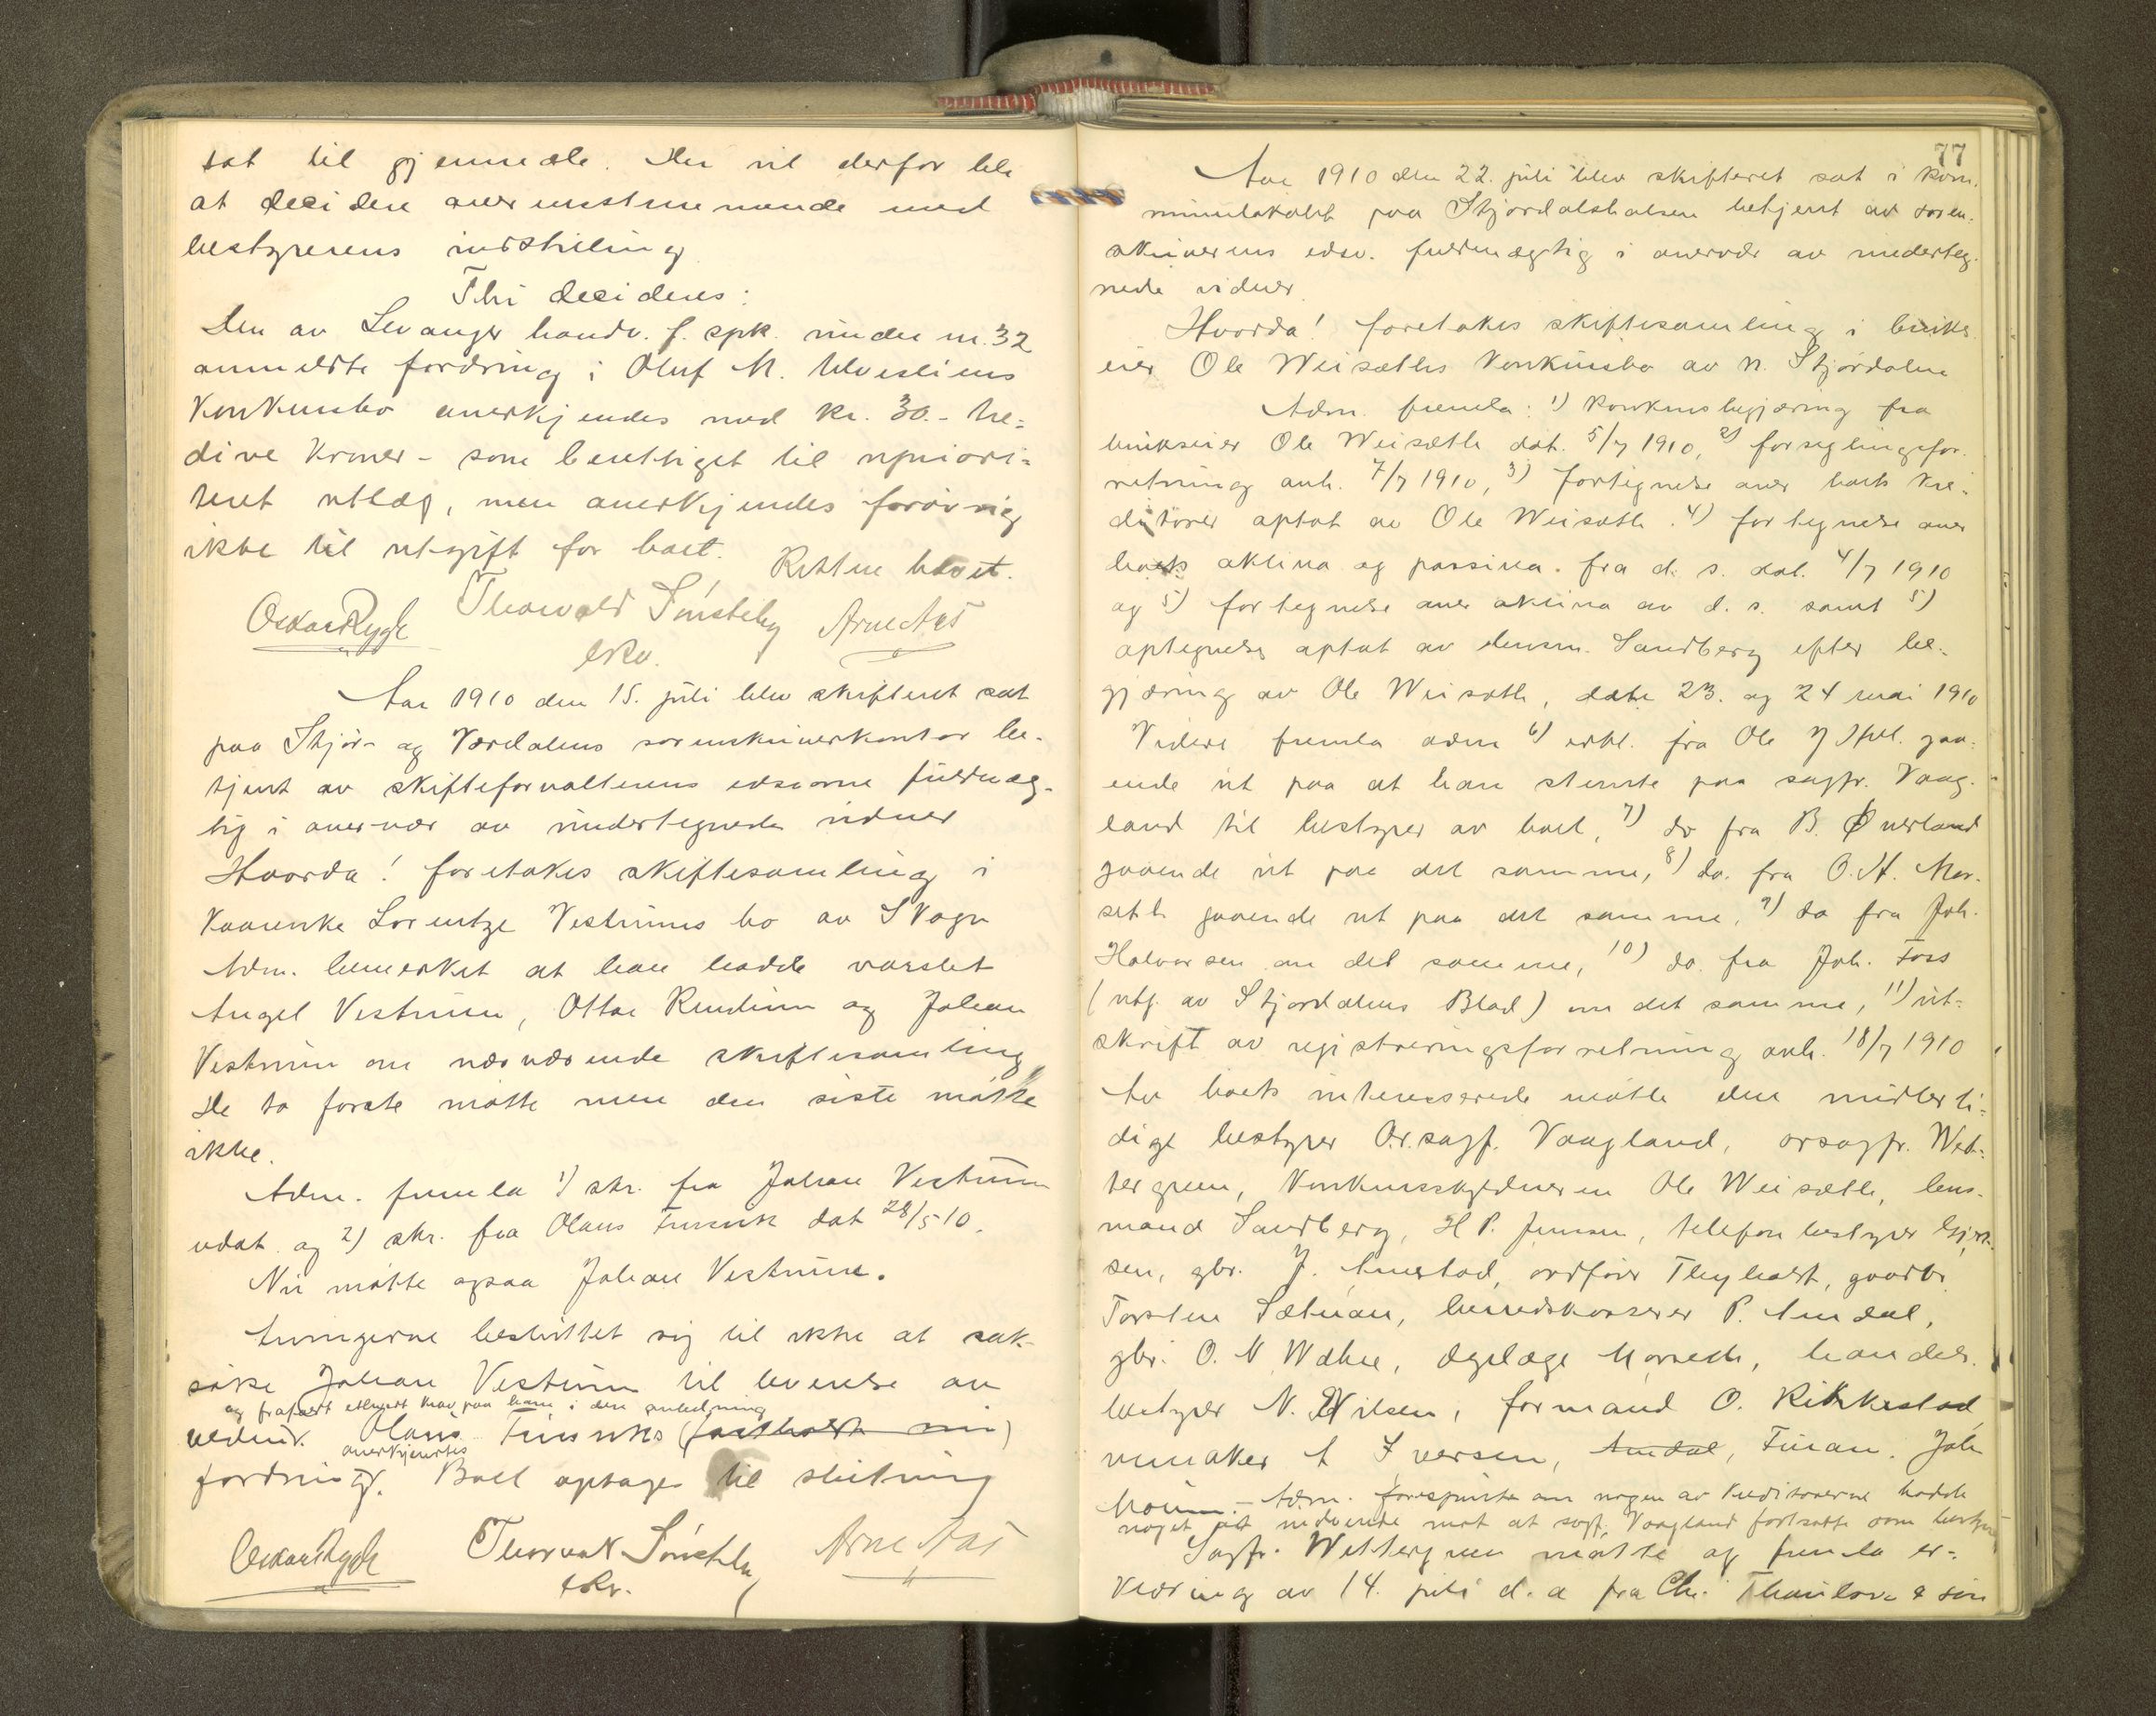 sat til gjennæle. Der vil derfor bli
at decidere overensstemmende med
bestyrerens indstilling
Thi decideres:
Den av Levanger handv. f. spk. under nr. 32
anmeldte fordring i Oluf M. Ulvesliens
konkursbo anerkjendes med kr. 30.- tre=
dive kroner - som berettiget til upriori=
teret utlæg, men anerkjendes forøvrig
ikke til utgift for boet. Retten hævet.
Oskar Rygh Thorvald Sønsteby Arne Aas
lRv.
Aar 1910 den 15. juli blev skifteret sat
paa Stjør- og Værdalens sorenskriverkontor be-
tjent av skifteforvalterens edsvorne fuldmæg-
tig i overvær av undertegnede vidner
Hvorda! foretakes skiftesamling i
Lorentze Vestrums bo av Skogn
Adm. bemerket at han hadde varslet
Angel Vestrum, Ottar Rendum og Johan
Vestrum om nærværende skiftesamling
De to første møtte men den siste møtte
ikke.
Adm. fremla 1) skr. fra Johan Vestrum
udat. og 2) skr. fra Olaus dat 28/5 10.
Nu møtte ogsaa Johan Vestrum.
Arvingerne besluttet sig til ikke at sak-
søke Johan Vestrum til levering av
og frafaldt ethvert krav paa ham i den anledning
vedun. Olaus (fastholdt sin)
anerkjendtes
fordring. Boet optages til slutning
Oskar Rygh Thorvald Sønsteby Arne Aas
lRv.
77
Aar 1910 den 22. juli blev skifteret sat i kom-
munelokalet paa Stjørdalshalsen betjent av soren-
skriverens edsv. fuldmægtig i overvær av underteg-
nede vidner.
Hvorda! foretakes skiftesamling i bruks-
eier Ole Weisæths konkursbo av n. Stjørdalen
Adm. fremla: 1) konkursbegjæring fra
brukseier Ole Weisæth dat. 5/7 1910, 2) forseglingsfor-
retning avh. 7/7 1910, 3) fortegnelse over boets kre-
ditorer optat av Ole Weisæth. 4) fortegnelse over
boets aktiva og passiva. fra d. s. dat. 4/7 1910
og 5) fortegnelse over aktiva av d. s. samt 5)
optegnelse optat av lensm. Sandberg efter be-
gjæring av Ole Weisæth, date 23. og 24 mai 1910
Videre fremla adm 6) erkl. fra Ole J gaa-
ende ut paa at han stemte paa sagfr. Vaag-
land til bestyrer av boet, 7) do fra B. Øverland
gaaende ut paa det samme, 8) do. fra O. H. Mar-
seth gaaende ut paa det samme, 9) do fra Joh.
Halvorsen om det samme, 10) do. fra Joh. Foss
(utg. av Stjørdalens Blad) om det samme, 11) ut-
skrift av registreringsforretning avh. 18/7 1910
Av boets interesserede møtte den midlerti-
dige bestyrer O.r.sagf. Vaagland, orsagfr. Wet-
tergreen, konkursskyldneren Ole Weisæth, lens-
mand Sandberg, H P. Jensen, telefonbestyrer
sen, gbr. J. Arnstad, ordfører Thyholdt, gaardbr
Torsten Sætnan, herredskasserer P. Amdal,
gbr. O. N Wæhre, dyrlæge Marseth, handels-
bestyrer N. Nilsen, formand O. Rikkestad
urmaker A Iversen, Amdal, Joh
Moum. - Adm. forespurte om nogen av kreditorerne hadde
noget at indvende mot at sagf. Vaagland fortsatte som bestyrer
Sagfr. Wettergreen møtte og fremla er-
klæring av 14. juli d. a fra Chr. Thaulow & søn